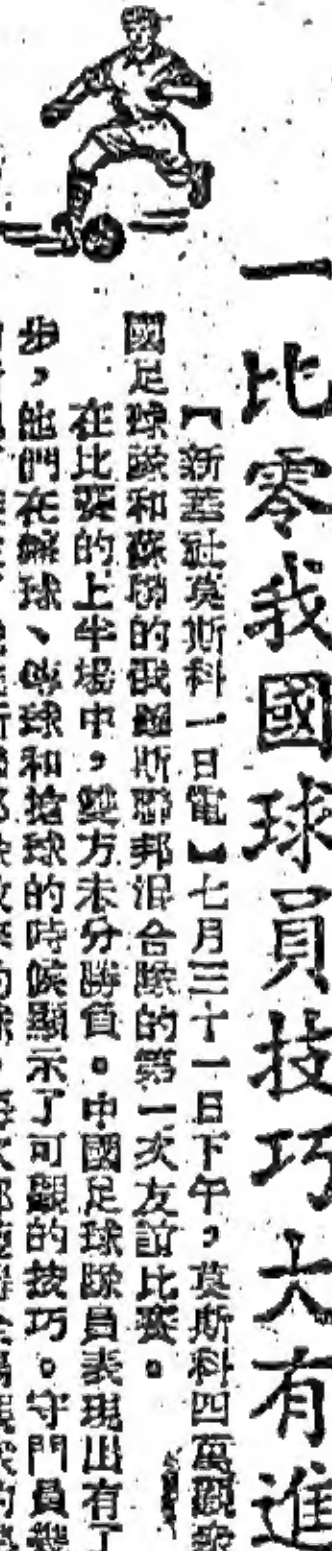 一比零我國球員技巧大有進
【新華社莫斯科一日電】七月三十一日下午，莫斯科四萬觀眾
國足球隊和蘇聯的俄羅斯聯邦混合隊的第一次友誼比賽。
在比賽的上半場中，雙方未分勝負。中國足球隊員表現出有了
步，他們在繳球、傳球和搶球的時候顯示了可觀的技巧。守門員